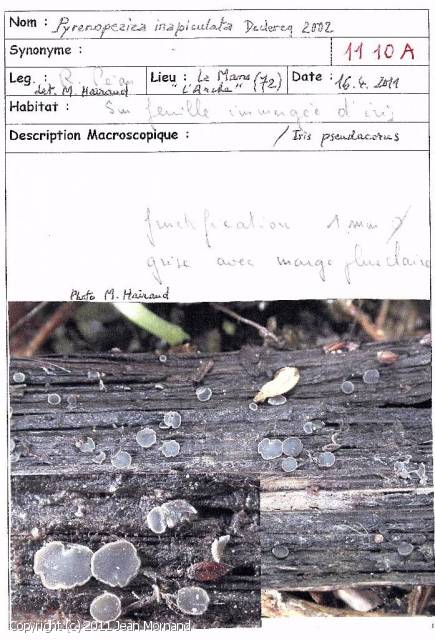 Nom : Pyrenopeziza inapiculata Declercq 2002
Synonyme :
11 10 A
Leg. : R. Péan
det. M. Hairaud
Lieu : Le Mans (72)
"L'Arche"
Date : 16.4.2011
Habitat : Sur feuille immergée d'iris
Description Macroscopique : / Iris pseudacorus
fructification 1 mm
grise avec marge plus claire
Photo M. Hairaud
Copyright (c) 2011 Jean Mornand